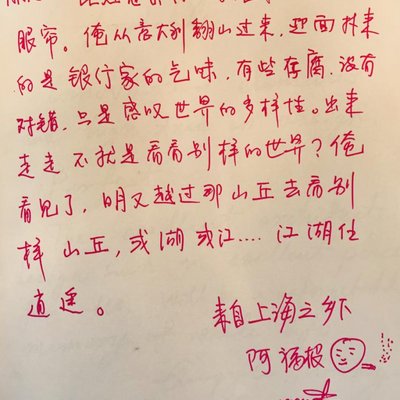 服帘。俺从意大利翻山过来，迎面扑来
的是银行家的气味，有些存腐，没有
对错，只是感叹世界的多样性。出来
走走不就是看看别样的世界？俺
看见了，明又越过那山丘去看别
样山丘，或湖或江.... 江湖任
逍遥。
来自上海之乡下
阿福根